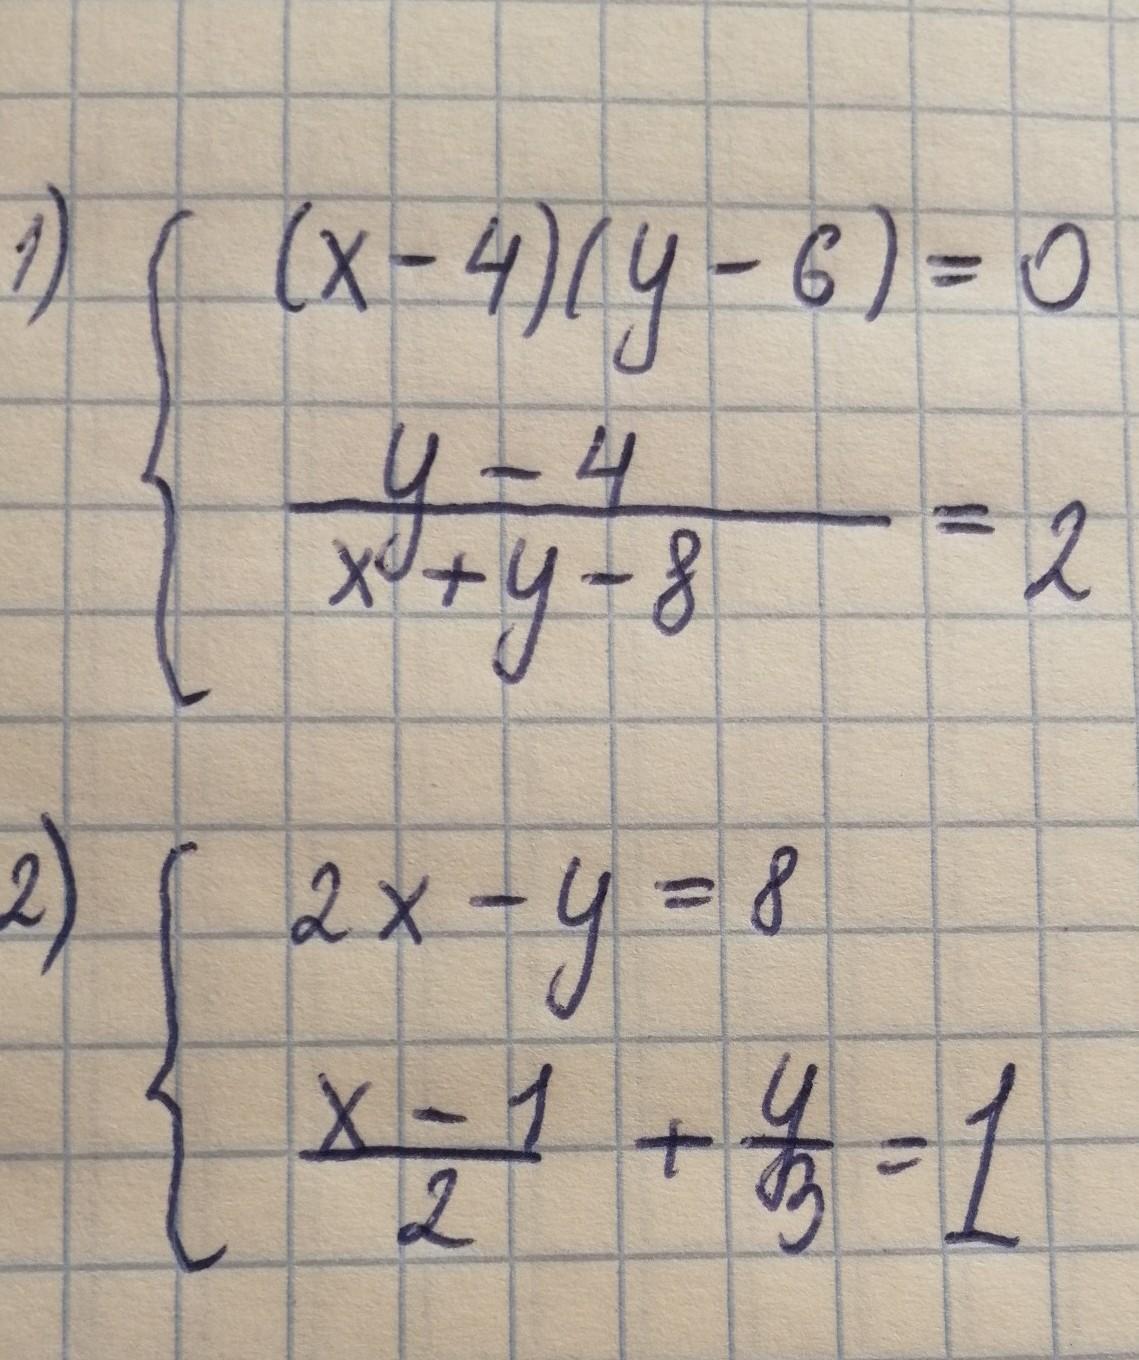 1) (x - 4)(y - 6) = 0
y - 4
x + y - 8 = 2
2) 2x - y = 8
x - 1 + y = 1
2 3